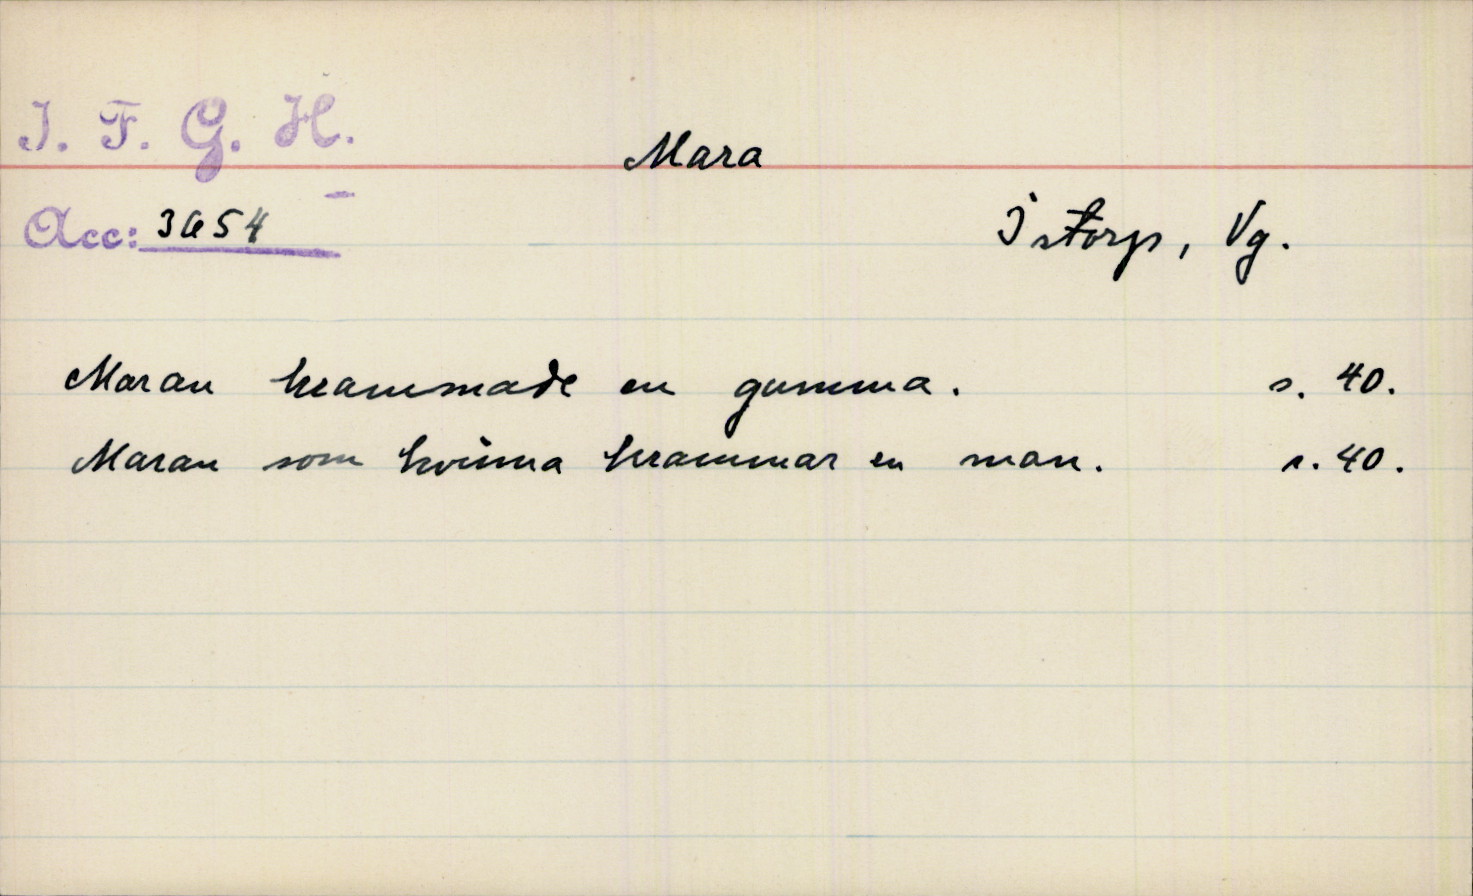 I. F. G. H.
Mara
Acc: 3654
Istorp, Vg.
Maran krammade en gumma. s. 40.
Maran som kvinna krammar en man. s. 40.